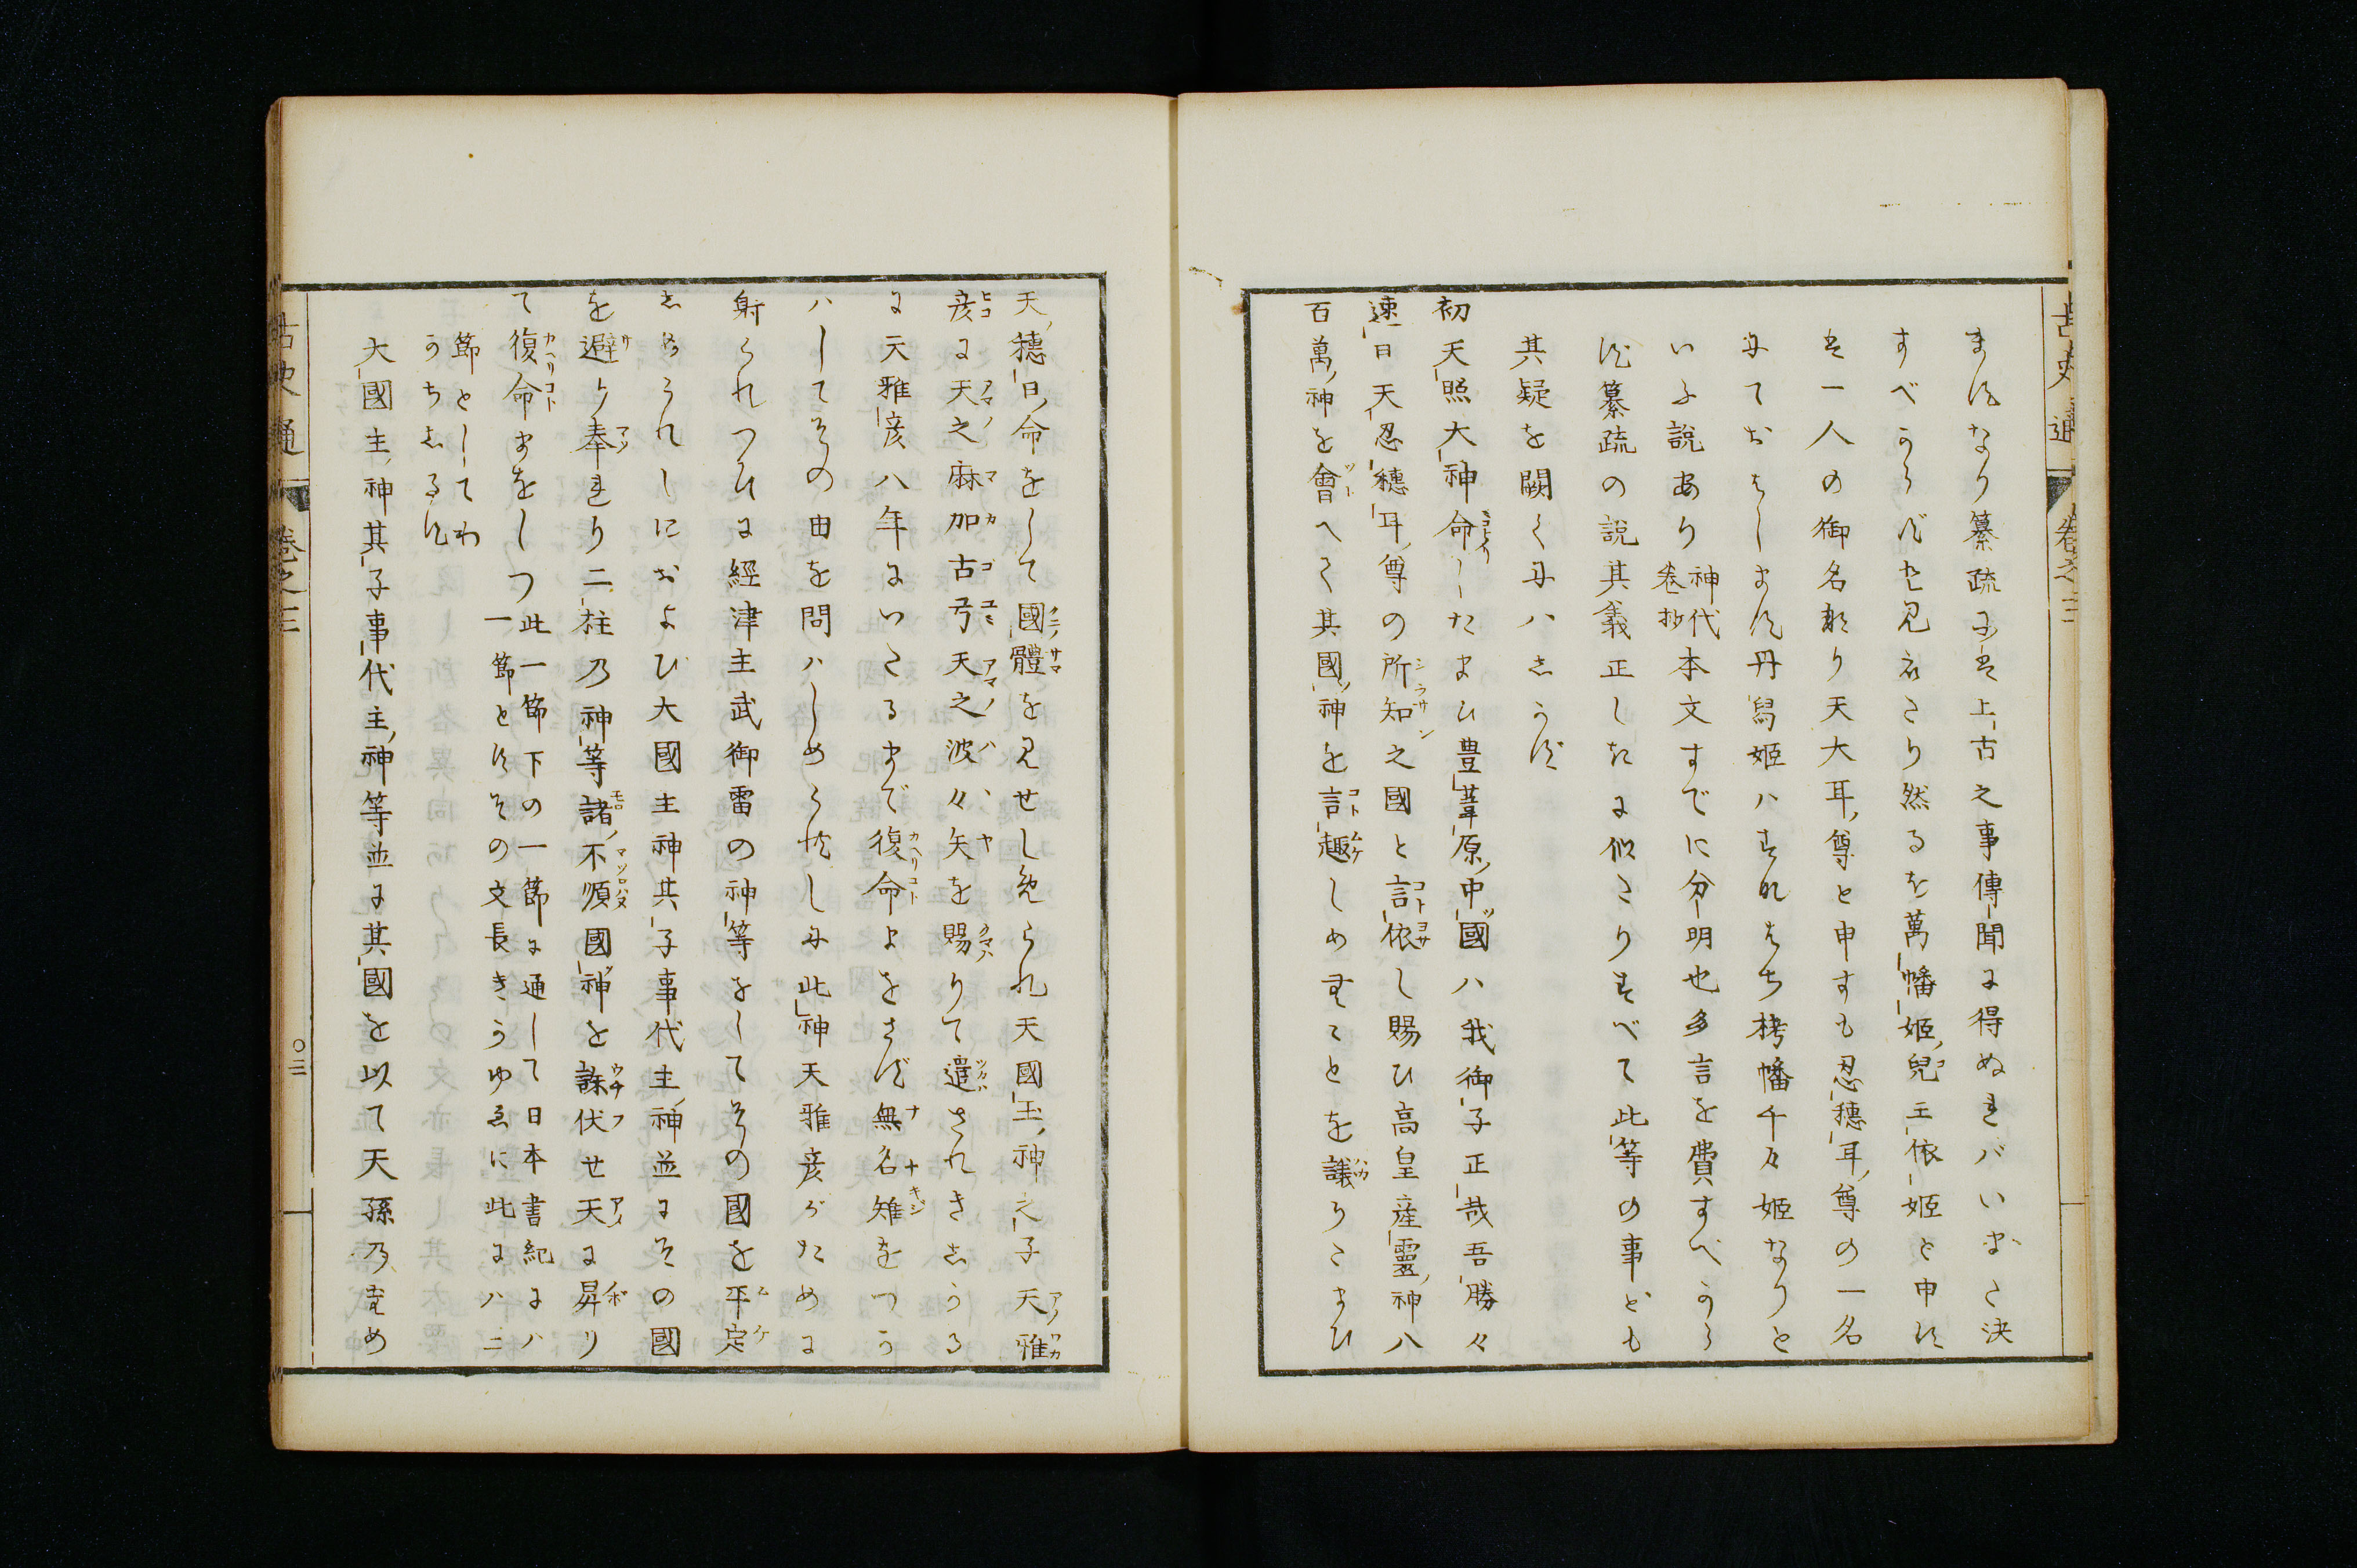 古史通 卷之三
ます なり纂疏には上古之事傳聞に得ぬればいまた決
すべからずと見えたり然るを萬幡姫兒玉依姫と申す
は一人の御名なり天大耳尊と申すも忍穗耳尊の一名
にておはします丹舄姫ハすなはち栲幡千々姫なりと
いふ説あり神代卷抄本文すでに分明也多言を費すべから
ず纂疏の説其義正しきに似たりすべて此等の事ども
其疑を闕くにハしかず
初天照大神命したまひ豊葦原中國ハ我御子正哉吾勝々
速日天忍穗耳尊の所知之國と言依し賜ひ高皇産靈神八
百萬神を會へて其國神を言趣しめむことを議りたまひ
天穗日命をして國體を見せしめられ天國玉神之子天雅
彦に天之麻加古弓天之波々矢を賜りて遣されきしかる
に天雅彦八年にいたるまで復命まをさず無名雉をつか
ハしてその由を問ハしめられしに此神天雅彦がために
射られつひに經津主武御雷の神等をしてその國を平定
しめられしにおよび大國主神其子事代主神並にその國
を避り奉れり二柱乃神等諸不順國神を誅伏せ天に昇り
て復命まをしつ此一節下の一節に通して日本書紀にハ
一節とすその文長きうゆゑに此にハ二
節としてわ
かちしるす
大國主神其子事代主神等並に其國を以て天孫乃ために
古史通 卷之三
〇三